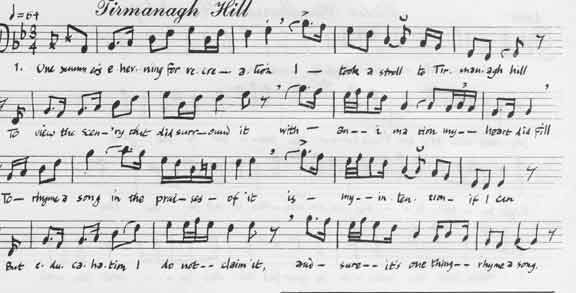 Tirmanagh Hill
♩=64
3
4
1. One summer's e'her-ning for re-cre-a-tion I — took a stroll to Tir-man-agh hill
To view the scen-'ry that did surr-ound it with — an--i ma tion my-- heart did fill
To— rhyme a song in the prai-ses- of it is — my--in. ten. tion— if I can
But e. du. ca. ha. tion I do not-- claim it, and— sure-- it's one thing-- rhyme a song.